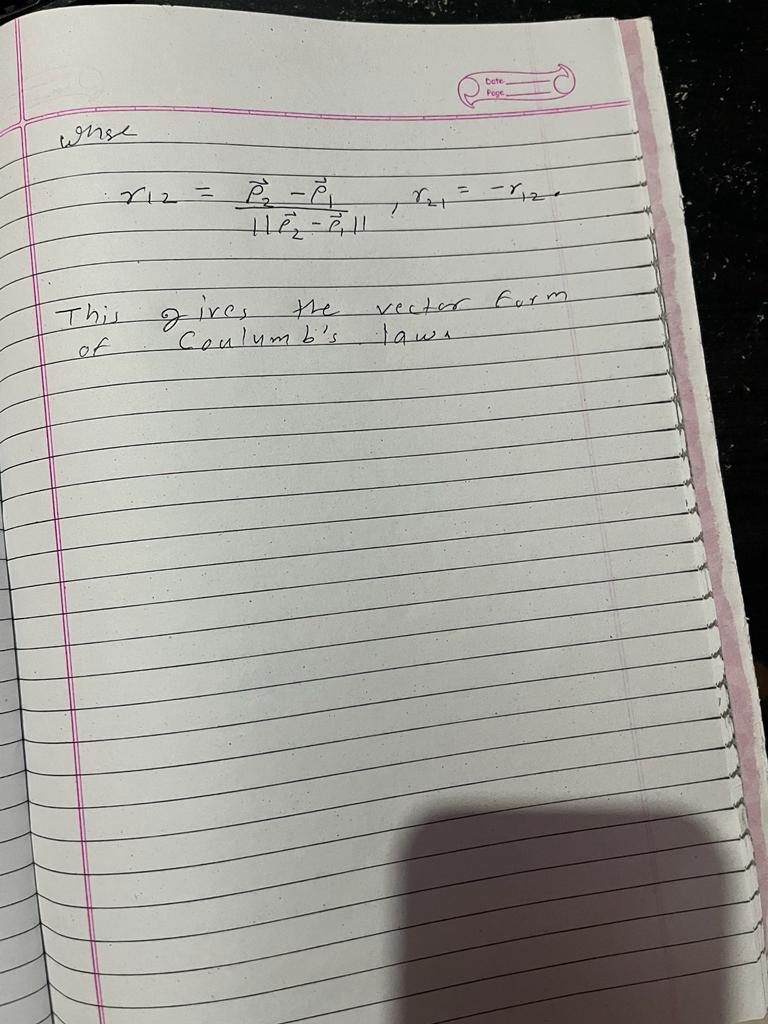 Date
Page
where
r12 = (ρ⃗₂ - ρ⃗₁) / ||ρ⃗₂ - ρ⃗₁|| , r₂₁ = -r₁₂.
This gives the vector form
of Coulumb's law.